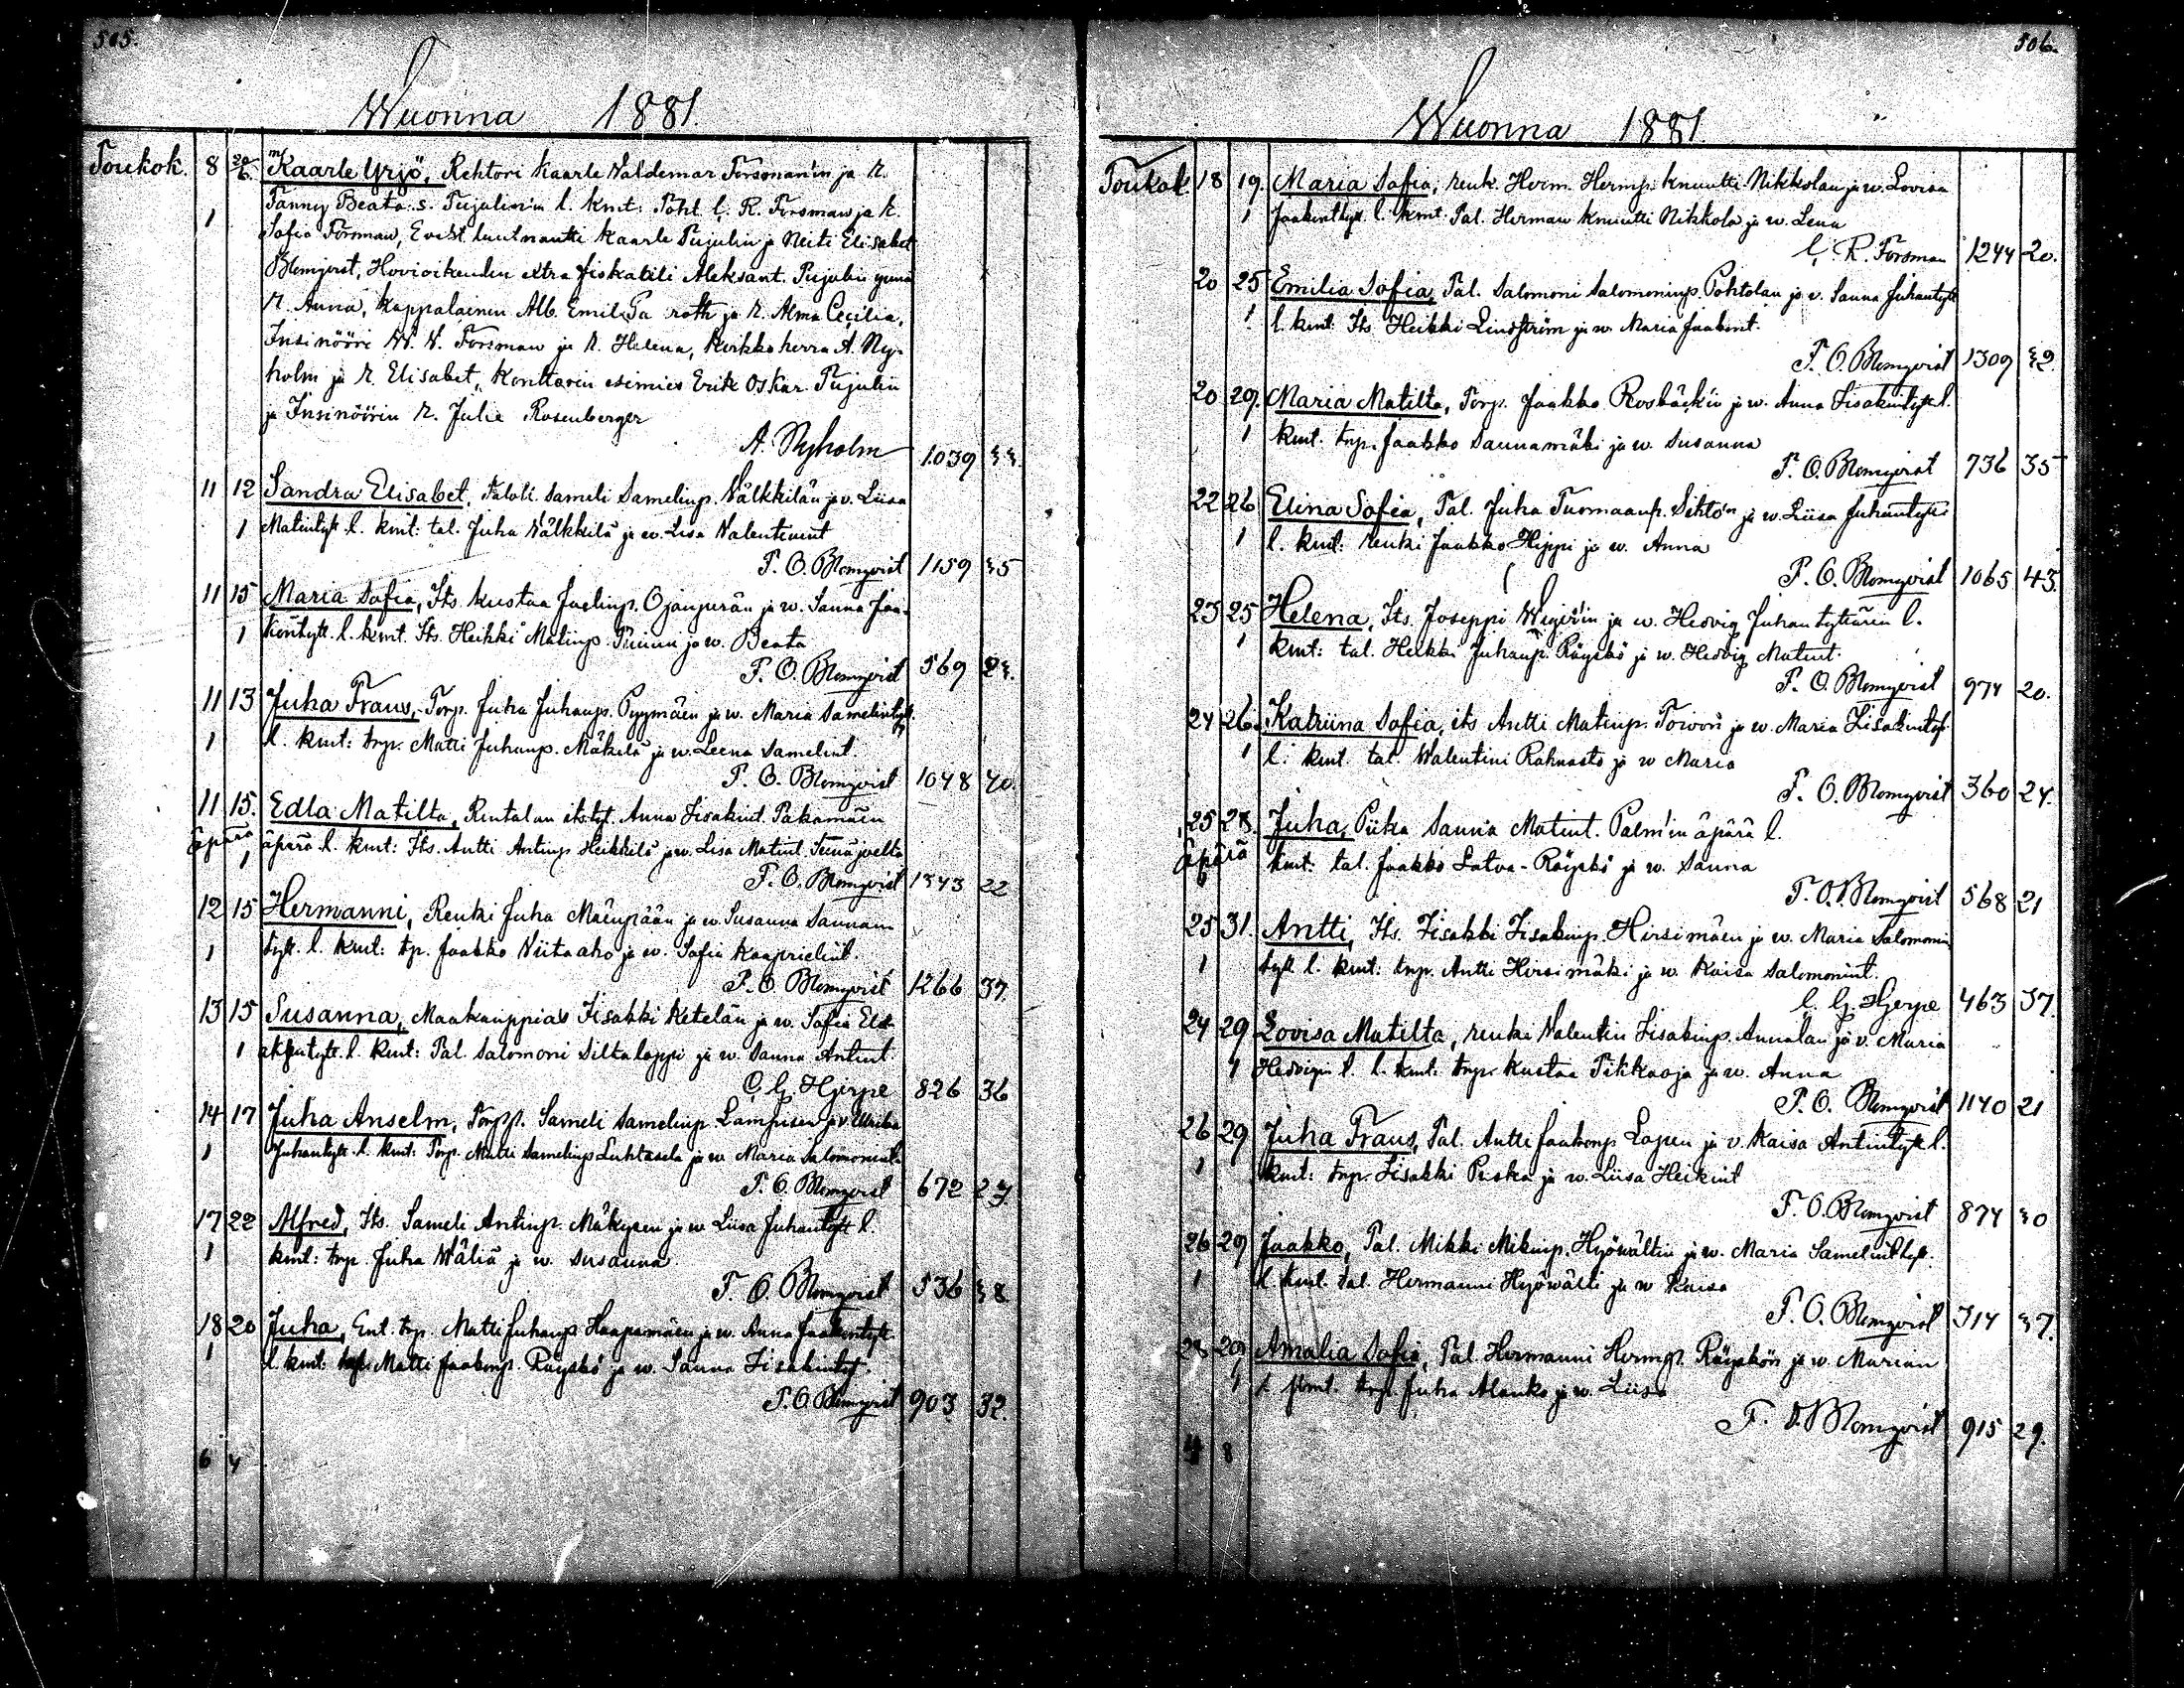 505.
Wuonna 1881.
Toukok. 8 20/6. Kaarle Yrjö, Rehtori Kaarle Waldemar Forsman'in ja r.
1 Fanny Beata s. Tujulin'in l. kmt: Pohl. C. R. Forsman ja r.
Sofia Forsman, luutnantti Kaarle Tujulin ja Neiti Elisabet
Blomqvist, Hovioikeuden extra fiskatili Aleksant. Tujulin ynnä
r. Anna, Kappalainen Alb. Emil ja r. Alma Cecilia,
Insinööri W. W. Forsman ja r. Helena, Kirkkoherra A. Ny-
holm ja r. Elisabet, Konttorin esimies Erik Oskar Tujulin
ja Insinöörin r. Julie Rosenberger
A. Nyholm 1039
11 12 Sandra Elisabet, Taloll. Sameli Samelinp. Wälkkilän ja v. Liisa
1 Matintytt. l. kmt: tal. Juha Wälkkilä ja w. Lisa Valentinint
F. O. Blomqvist 1159 35
11 15 Maria Sofia, Its. Kustaa Juelinp. Ojanperän ja w. Sanna Jaa-
1 kontytt. l. kmt. Its. Heikki Matinp. ja w. Beata
F. O. Blomqvist 569
11 13 Juha Frans, Torp. Juha Juhanp. Pyymäen ja w. Maria Samelintytt.
1 l. kmt: trp. Matti Juhanp. Mäkelä ja w. Leena Samelint.
F. O. Blomqvist 1048 40.
11 15. Edla Matilta, Rentalan its. tyt. Anna Iisakint. Pakamäen
äpärä 1 äpärä l. kmt: Its. Antti Antinp. Heikkilä ja w. Lisa Matint. Seinäjoelta
F. O. Blomqvist 1343 22
12 15 Hermanni, Renki Juha Mäenpään ja w. Susanna Sannan-
1 tytt. l. kmt: trp. Jaakko Viitaaho ja w. Sofia Kaaprielint.
F. O. Blomqvist 1266 37.
13 15 Susanna, Maakauppias Iisakki Ketelän ja w. Sofia
1 l. kmt: Tal. Salomoni Siltaloppi ja w. Sanna Antint.
C. G. Hjerpe 826 36
14 17 Juha Anselm, Torpp. Sameli Samelinp. Lampisen ja v. Ulriika
1 Juhantytt. l. kmt: Torp. Matti Samelinp. Luhtasela ja w. Maria Salomonint.
F. O. Blomqvist 672 27
17 22 Alfred, Its. Sameli Antinp. Mäkysen ja w. Liisa Juhantytt. l.
1 kmt: trp. Juha Wäliä ja w. Susanna
F. O. Blomqvist 536 38
18 20 Juha, Ent. trp. Matti Juhanp. Haapamäen ja w. Anna Jaakontytt.
1 l. kmt: Matti Jaakonp. Räyskö ja w. Sanna Iisakintyt.
F. O. Blomqvist 903 32.
6 4
506.
Wuonna 1881.
Toukok. 18 19. Maria Sofia, renk. Herm. Hermp. Knuutti Nikkolan ja w. Lovisa
1 Jaakontytt. l. kmt: Tal. Herman Knuutti Nikkola ja w. Lena
C. R. Forsman 1244 20.
20 25 Emilia Sofia, Tal. Salomoni Salomoninp. Pohtolan ja v. Sanna Juhantytt
1 l. kmt: Its. Heikki Lindström ja w. Maria Jaakont.
F. O. Blomqvist 1309 32.
20 29. Maria Matilta, Torp. Jaakko Rosbäck'in ja w. Anna Iisakintytt. l.
1 kmt. trp. Jaakko Saunamäki ja w. Susanna
F. O. Blomqvist 736 35
22 26 Elina Sofia, Tal. Juha Tuomaanp. Sihto'n ja w. Liisa Juhantytt.
1 l. kmt: renki Jaakko Hyppi ja w. Anna
F. O. Blomqvist 1065 43.
23 25 Helena, Its. Joseppi ja w. Hedvig Juhantyttären l.
1 kmt: tal. Heikki Juhanp. Räyskö ja w. Hedvig Matint.
F. O. Blomqvist 974 20.
24 26. Katriina Sofia, its Antti Matinp. ja w. Maria Iisakintyt.
1 l. kmt. tal. Walentini Rahnasto ja w Maria
F. O. Blomqvist 360 24.
25 28. Juha, Piika Sanna Matint. Palm'in äpärä l.
äpärä kmt. tal. Jaakko Latva-Räyskö ja w. Sanna
F. O. Blomqvist 568 21
25 31. Antti, Its. Iisakki Iisakinp. Hirsimäen ja w. Maria Salomonin
1 tytt. l. kmt: trp. Antti Hirsimäki ja w. Kaisa Salomonint.
C. G. Hjerpe 463 37.
24 29 Lovisa Matilta, renki Valentin Iisakinp. Annalan ja v. Maria
1 Hedvigin l. l. kmt: trp. Kustaa Pitkäoja ja w. Anna
F. O. Blomqvist 1140 21
26 29 Juha Frans, Tal. Antti Jaakonp. ja v. Kaisa Antintytt. l.
1 kmt: trp. Iisakki ja w. Liisa Heikint
F. O. Blomqvist 874 30
26 29 Jaakko, Tal. Mikki Mikinp. Hyöwältin ja w. Maria Samelintytt.
1 l. kmt. tal. Hermanni Hyöwälti ja w Kaisa
F. O. Blomqvist 314 37.
28 29 Amalia Sofia, Tal. Hermanni Hermp. Räyskön ja w. Marian
1 l. kmt. trp. Juha Alanko ja w. Liisa
F. O. Blomqvist 915 29.
4 8